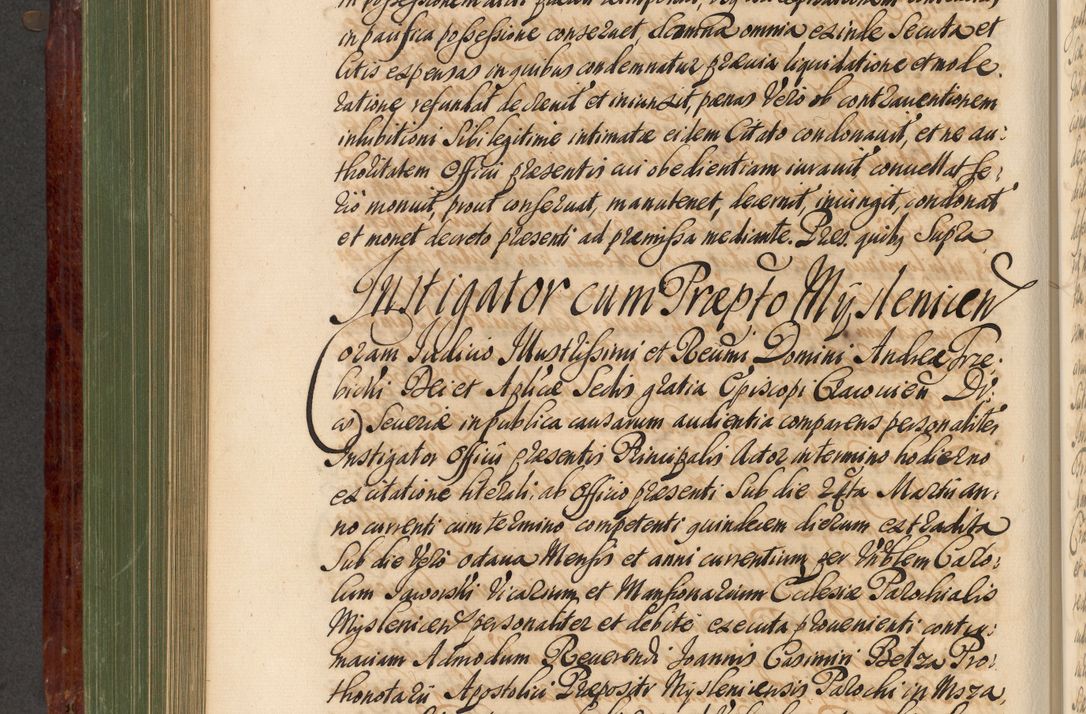 in pacifica possessione conseruet, damna omnia exinde secuta et
litis expensas in quibus condemnatur præuia liquidatione et mode
ratione refundat decreuit et iniunxit, pænas Vero ob contrauentionem
inhibitioni sibi legitimie intimatæ eidem Citato condonauit, et ne au:
thoritatem Officii præsentis cui obedientiam iurauit conuellat se:
rio monuit, prout conseruat, manutenet, decernit, iniungit, condonat
et monet decreto præsenti ad præmissa mediante. Præs. quibus Supra
Instigator cum Præpto Myslenicen
Coram Iudicio Illustrissimi et Reumi Domini Andreæ Trze:
bicki Dei et Aplicæ Sedis gratia Episcopi Cracouien Du:
cis Seueriæ in publica causarum audientia comparens personaliter
Instigator Officii præsentis Principalis Actor in termino hodierno
ex citatione literali, ab Officio præsenti sub die Martii an:
no currenti cum termino competenti quindecem dierum extradita
Sub die Vero octaua Mensis et anni currentium per Vnblem Caro:
lum Jaworski Vicarium et Mansionarium Ecclesiæ Parochialis
Myslenicen personaliter et debite executa prouenienti contu:
maciam Admodum Reuerendi Joannis Casimiri Betza Pro:
thonotarii Apostolici Præpositi Myslenicensis Parochi in Msza